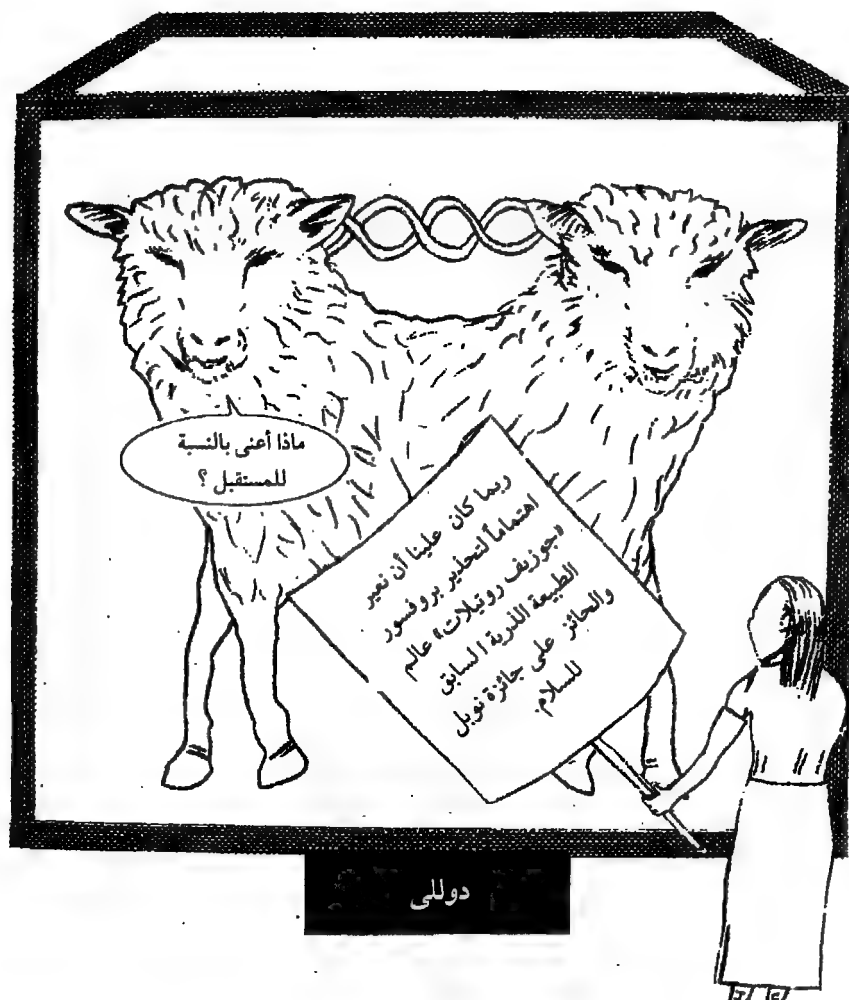 ماذا أعنى بالنسبة
للمستقبل ؟
ربما كان علينا أن نعير
اهتماماً لتحذير بروفسور
«جوزيف روتبلات» عالم
الطبيعة الذرية السابق
والحائز على جائزة نوبل
للسلام.
دوللى